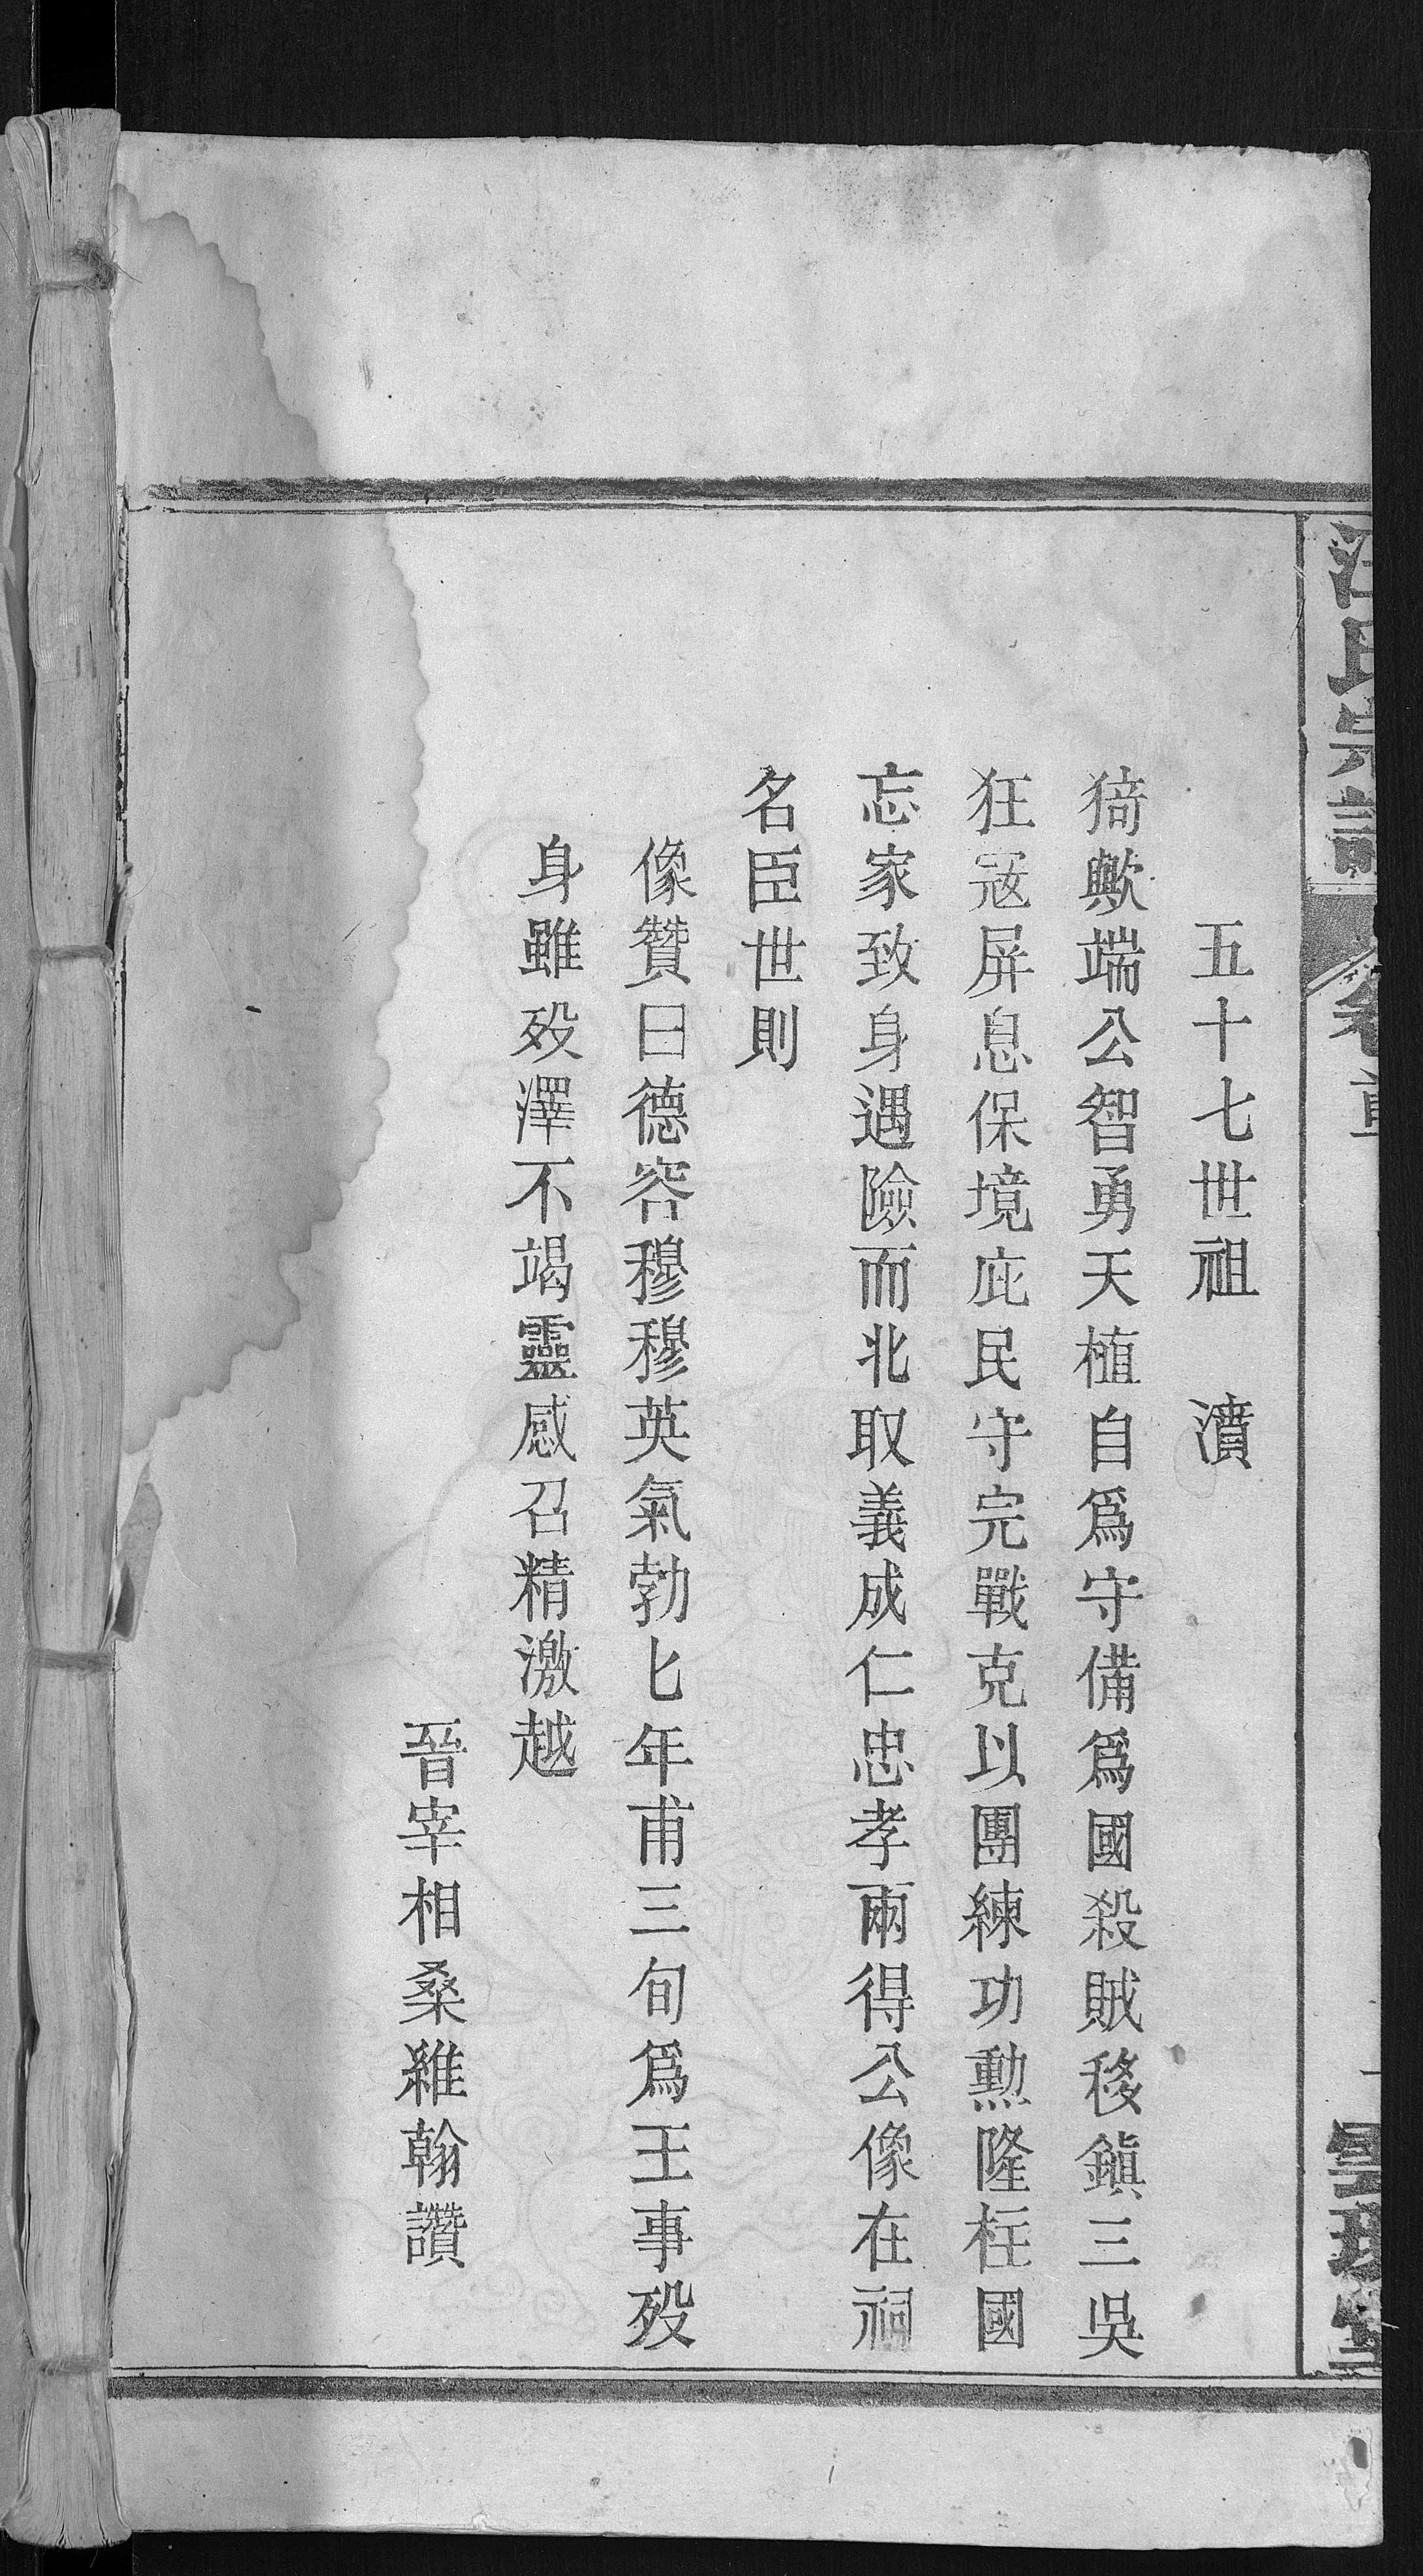 汪氏宗譜
卷首
五十七世祖 濆
猗歟端公智勇天植自爲守備爲國殺賊移鎭三吳
狂寇屏息保境庇民守完戰克以團練功勲隆柱國
忘家致身遇險而北取義成仁忠孝兩得公像在祠
名臣世則
像贊曰德容穆穆英氣勃匕年甫三旬爲王事歿
身雖歿澤不竭靈感召精激越
晉宰相桑維翰讚